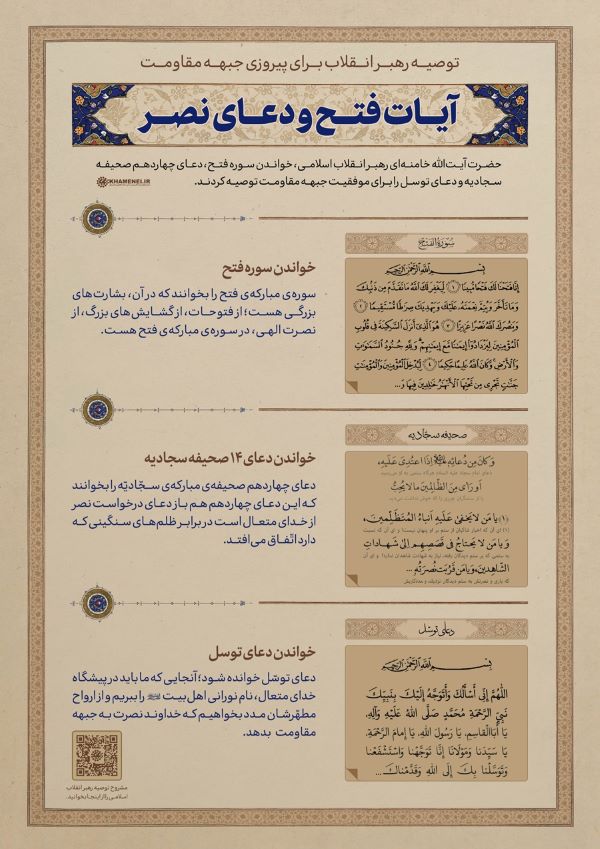 توصیه رهبر انقلاب برای پیروزی جبهه مقاومت
آیات فتح و دعای نصر
حضرت آیت‌الله خامنه‌ای رهبر انقلاب اسلامی، خواندن سوره فتح، دعای چهاردهم صحیفه
سجادیه و دعای توسل را برای موفقیت جبهه مقاومت توصیه کردند.
KHAMENEI.IR
سُورَةُ الفَتْح
خواندن سوره فتح
سوره‌ی مبارکه‌ی فتح را بخوانند که در آن، بشارت‌های
بزرگی هست؛ از فتوحات، از گشایش‌های بزرگ، از
نصرت الهی، در سوره‌ی مبارکه‌ی فتح هست.
بِسْمِ اللَّهِ الرَّحْمَنِ الرَّحِيمِ
إِنَّا فَتَحْنَا لَكَ فَتْحًا مُبِينًا ﴿١﴾ لِيَغْفِرَ لَكَ اللَّهُ مَا تَقَدَّمَ مِنْ ذَنْبِكَ
وَمَا تَأَخَّرَ وَيُتِمَّ نِعْمَتَهُ عَلَيْكَ وَيَهْدِيَكَ صِرَاطًا مُسْتَقِيمًا ﴿٢﴾
وَيَنْصُرَكَ اللَّهُ نَصْرًا عَزِيزًا ﴿٣﴾ هُوَ الَّذِي أَنْزَلَ السَّكِينَةَ فِي قُلُوبِ
الْمُؤْمِنِينَ لِيَزْدَادُوا إِيمَانًا مَعَ إِيمَانِهِمْ وَلِلَّهِ جُنُودُ السَّمَاوَاتِ
وَالْأَرْضِ وَكَانَ اللَّهُ عَلِيمًا حَكِيمًا ﴿٤﴾ لِيُدْخِلَ الْمُؤْمِنِينَ وَالْمُؤْمِنَاتِ
جَنَّاتٍ تَجْرِي مِنْ تَحْتِهَا الْأَنْهَارُ خَالِدِينَ فِيهَا وَ...
صحیفه سجّادیه
خواندن دعای ۱۴ صحیفه سجادیه
دعای چهاردهم صحیفه‌ی مبارکه‌ی سجّادیّه را بخوانند
که این دعای چهاردهم هم باز دعای درخواست نصر
از خدای متعال است در برابر ظلم‌های سنگینی که
دارد اتّفاق می‌افتد.
وَ كَانَ مِنْ دُعَائِهِ إِذَا اعْتُدِيَ عَلَيْهِ،
أَوْ رَأَى مِنَ الظَّالِمِينَ مَا لَا يُحِبُّ
(۱) يَا مَنْ لَا يَخْفَى عَلَيْهِ أَنْبَاءُ الْمُتَظَلِّمِينَ،
وَ يَا مَنْ لَا يَحْتَاجُ فِي قَصَصِهِمْ إِلَى شَهَادَاتِ
الشَّاهِدِينَ، وَ يَا مَنْ قَرُبَتْ نُصْرَتُهُ ...
دعای توسّل
خواندن دعای توسل
دعای توسّل خوانده شود؛ آنجایی که ما باید در پیشگاه
خدای متعال، نام نورانی اهل بیت را ببریم و از ارواح
مطهّرشان مدد بخواهیم که خداوند نصرت به جبهه
مقاومت بدهد.
بِسْمِ اللَّهِ الرَّحْمَنِ الرَّحِيمِ
اللَّهُمَّ إِنِّي أَسْأَلُكَ وَأَتَوَجَّهُ إِلَيْكَ بِنَبِيِّكَ
نَبِيِّ الرَّحْمَةِ مُحَمَّدٍ صَلَّى اللَّهُ عَلَيْهِ وَآلِهِ.
يَا أَبَا الْقَاسِمِ، يَا رَسُولَ اللَّهِ، يَا إِمَامَ الرَّحْمَةِ،
يَا سَيِّدَنَا وَمَوْلَانَا إِنَّا تَوَجَّهْنَا وَاسْتَشْفَعْنَا
وَتَوَسَّلْنَا بِكَ إِلَى اللَّهِ وَقَدَّمْنَاكَ...
مشروح توصیه رهبر انقلاب
اسلامی را از اینجا بخوانید.